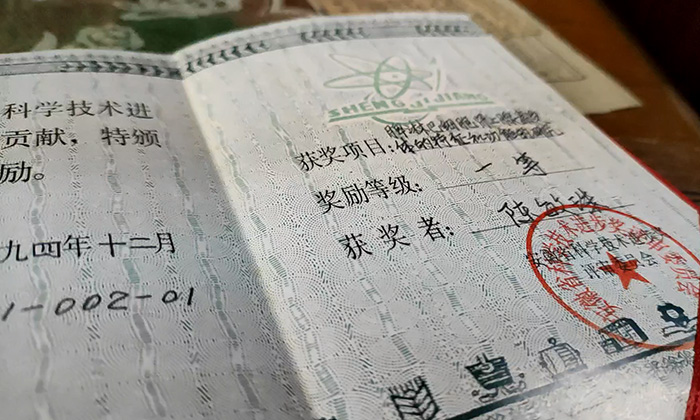 科学技术进
贡献，特颁
励。
九四年十二月
1-002-01
SHENG JI JIANG
获奖项目：
体的特征和功能的研究
奖励等级：一等
获奖者：陈敏珠
安徽省科学技术进步奖
评审委员会